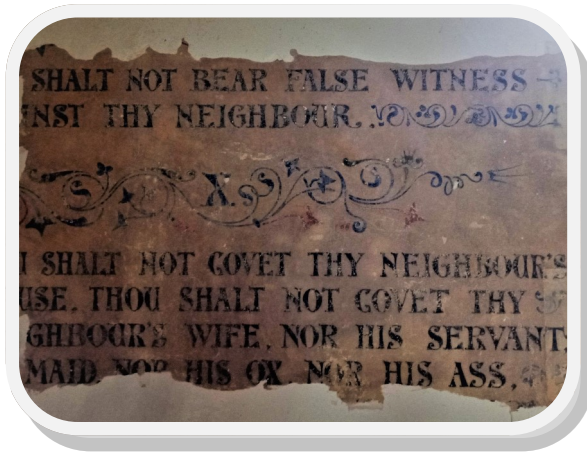 SHALT NOT BEAR FALSE WITNESS
INST THY NEIGHBOUR.
X
SHALT NOT COVET THY NEIGHBOUR'S
USE, THOU SHALT NOT COVET THY
GHBOUR'S WIFE, NOR HIS SERVANT,
MAID, NOR HIS OX, NOR HIS ASS,